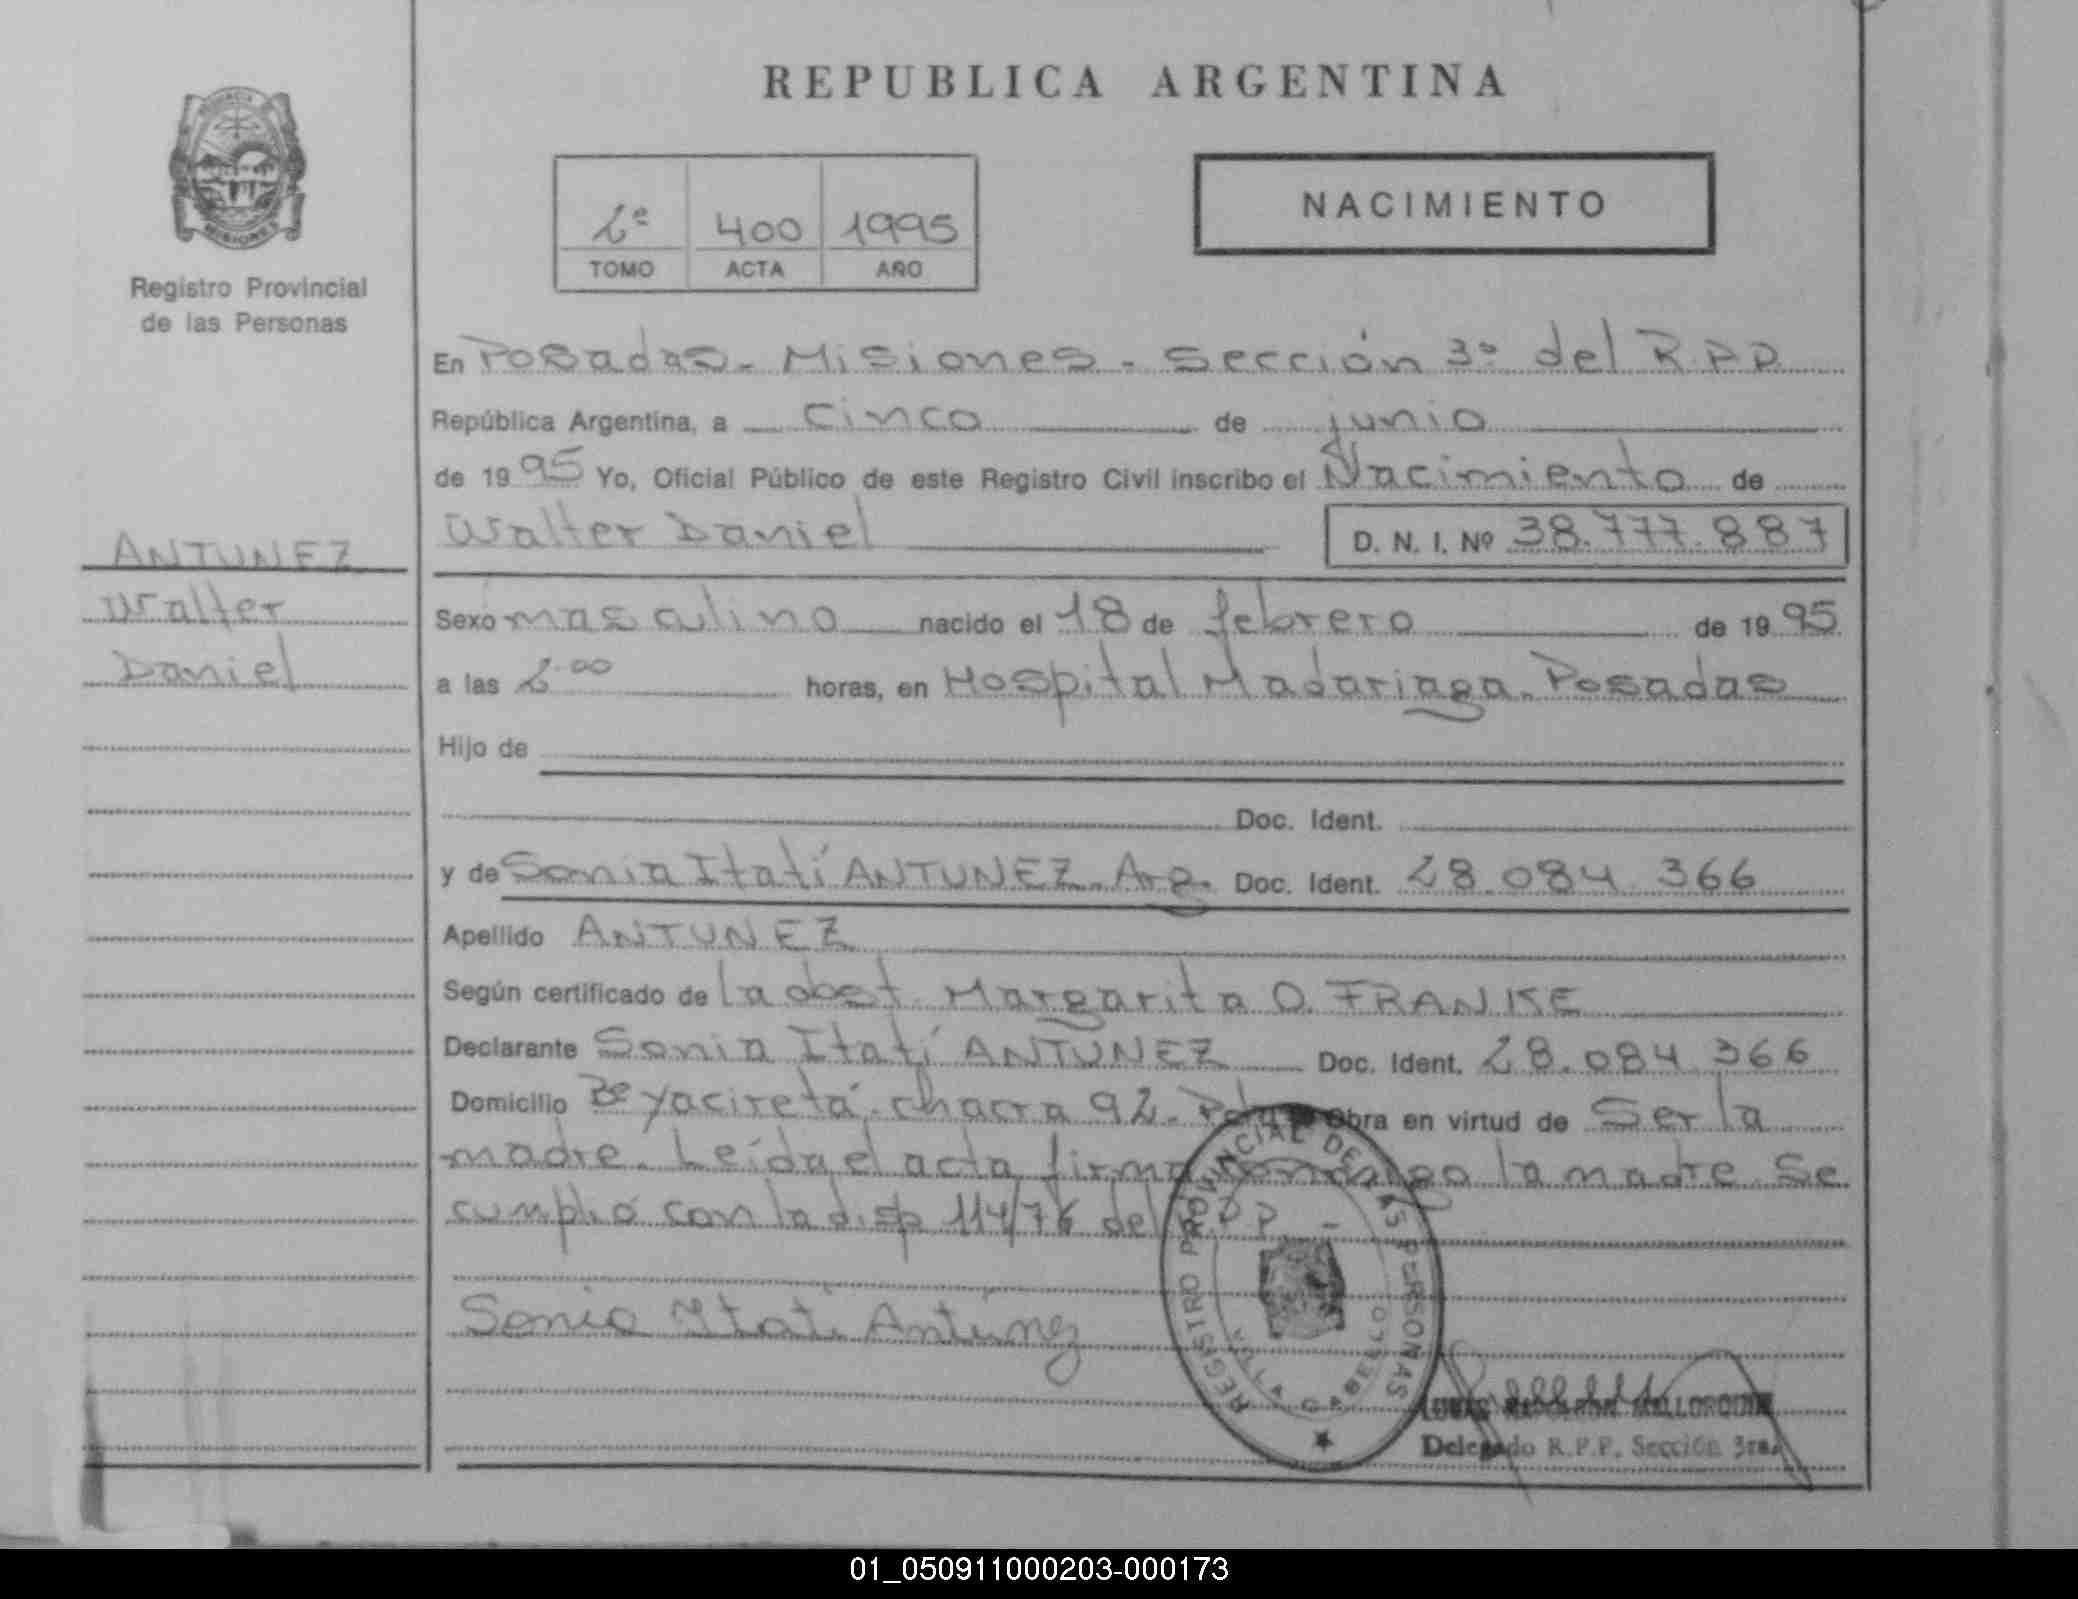 REPUBLICA ARGENTINA
MISIONES
Registro Provincial
de las Personas
2º 400 1995
TOMO ACTA AÑO
NACIMIENTO
En Posadas - Misiones - Sección 3º del R.P.P.
República Argentina, a cinco de junio
de 1995 Yo, Oficial Público de este Registro Civil inscribo el Nacimiento de
Walter Daniel D. N. I. Nº 38.777.887
ANTUNEZ
Walter
Daniel
Sexo masculino nacido el 18 de febrero de 1995
a las 2.00 horas, en Hospital Madariaga. Posadas
Hijo de
Doc. Ident.
y de Sonia Itatí ANTUNEZ. Arg. Doc. Ident. 28.084.366
Apellido ANTUNEZ
Según certificado de la obst. Margarita O. FRANKE
Declarante Sonia Itatí ANTUNEZ Doc. Ident. 28.084.366
Domicilio Bº Yaciretá. chacra 92. Obra en virtud de Ser la
madre. Leída el acta firma conmigo la madre. Se
cumplió con la disp 114/76 del R.P.P.
Sonia Itati Antunez
REGISTRO PROVINCIAL DE LAS PERSONAS
VILLA CABELLO
MALLORQUIN
Delegado R.P.P. Sección 3ra.
01_050911000203-000173